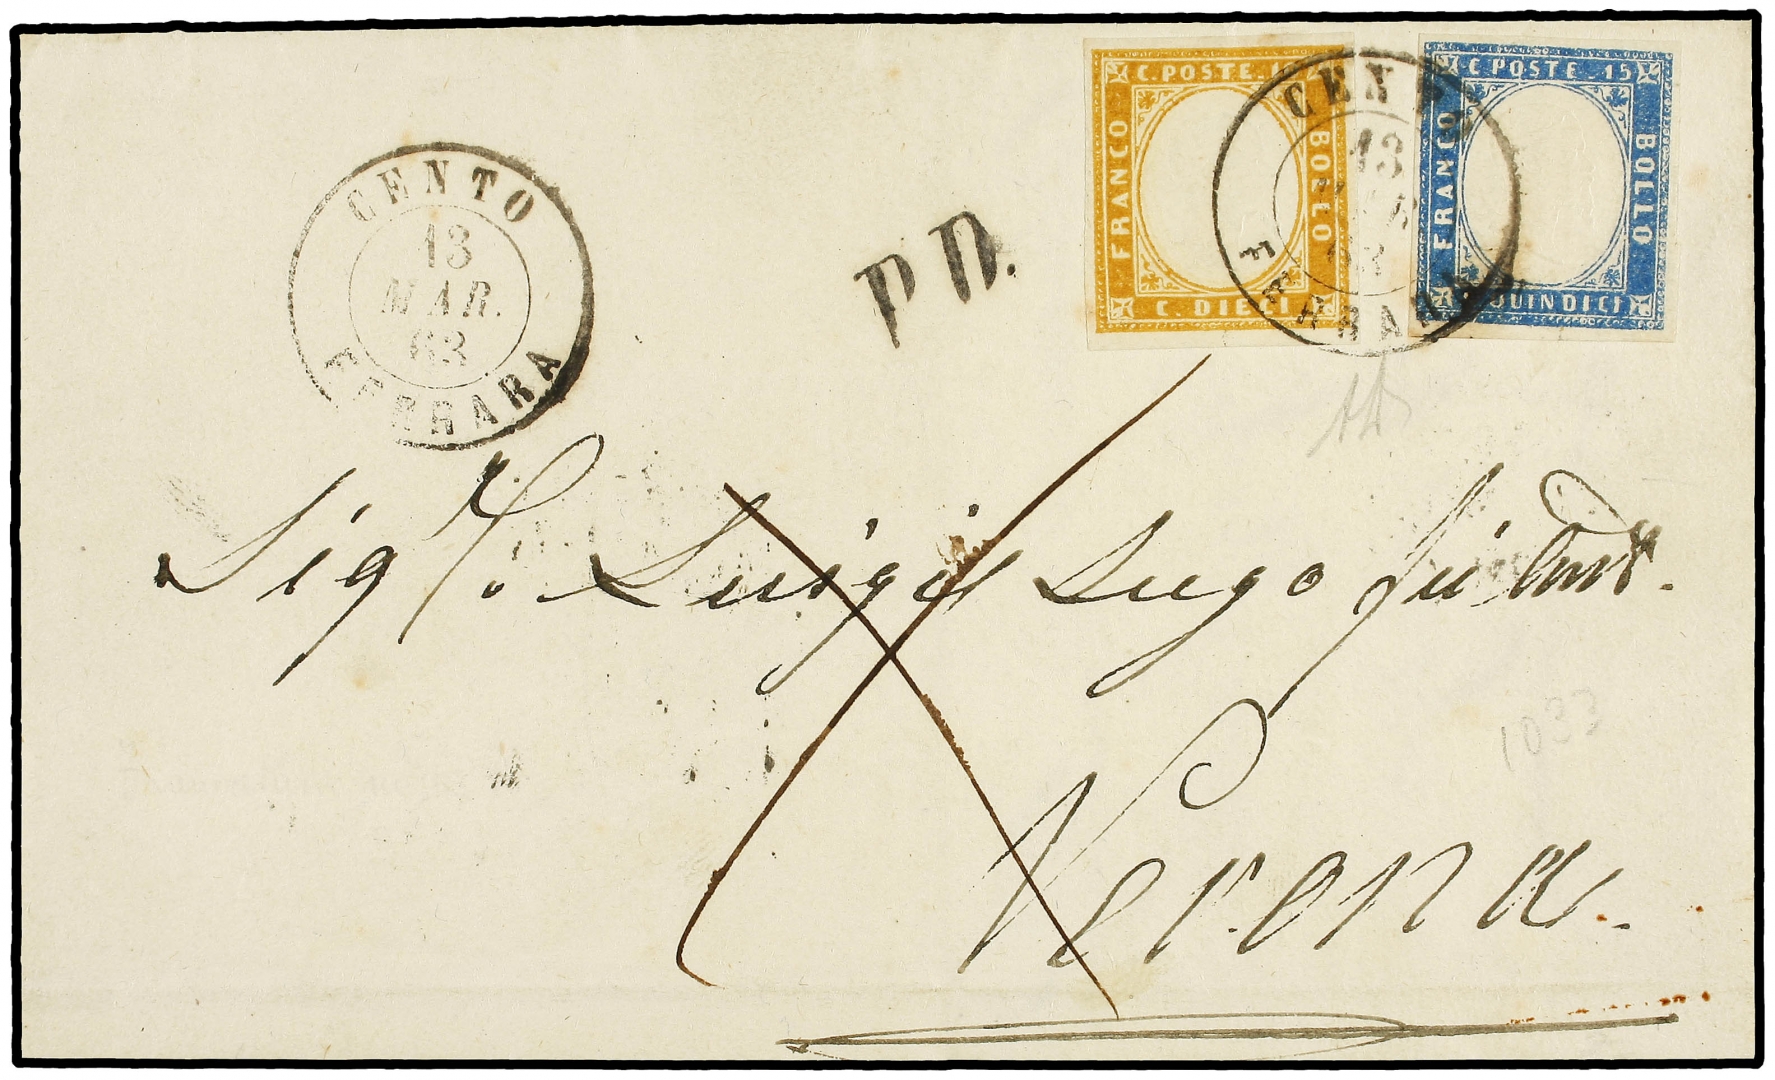 CENTO
13
MAR.
63
FERRARA
P. D.
C. POSTE. 10
FRANCO
BOLLO
C. DIECI
CENTO
13
MAR
63
FERRARA
C POSTE 15
FRANCO
BOLLO
QUINDICI
Sigr. Luigi Lugo fu
Verona.
1033